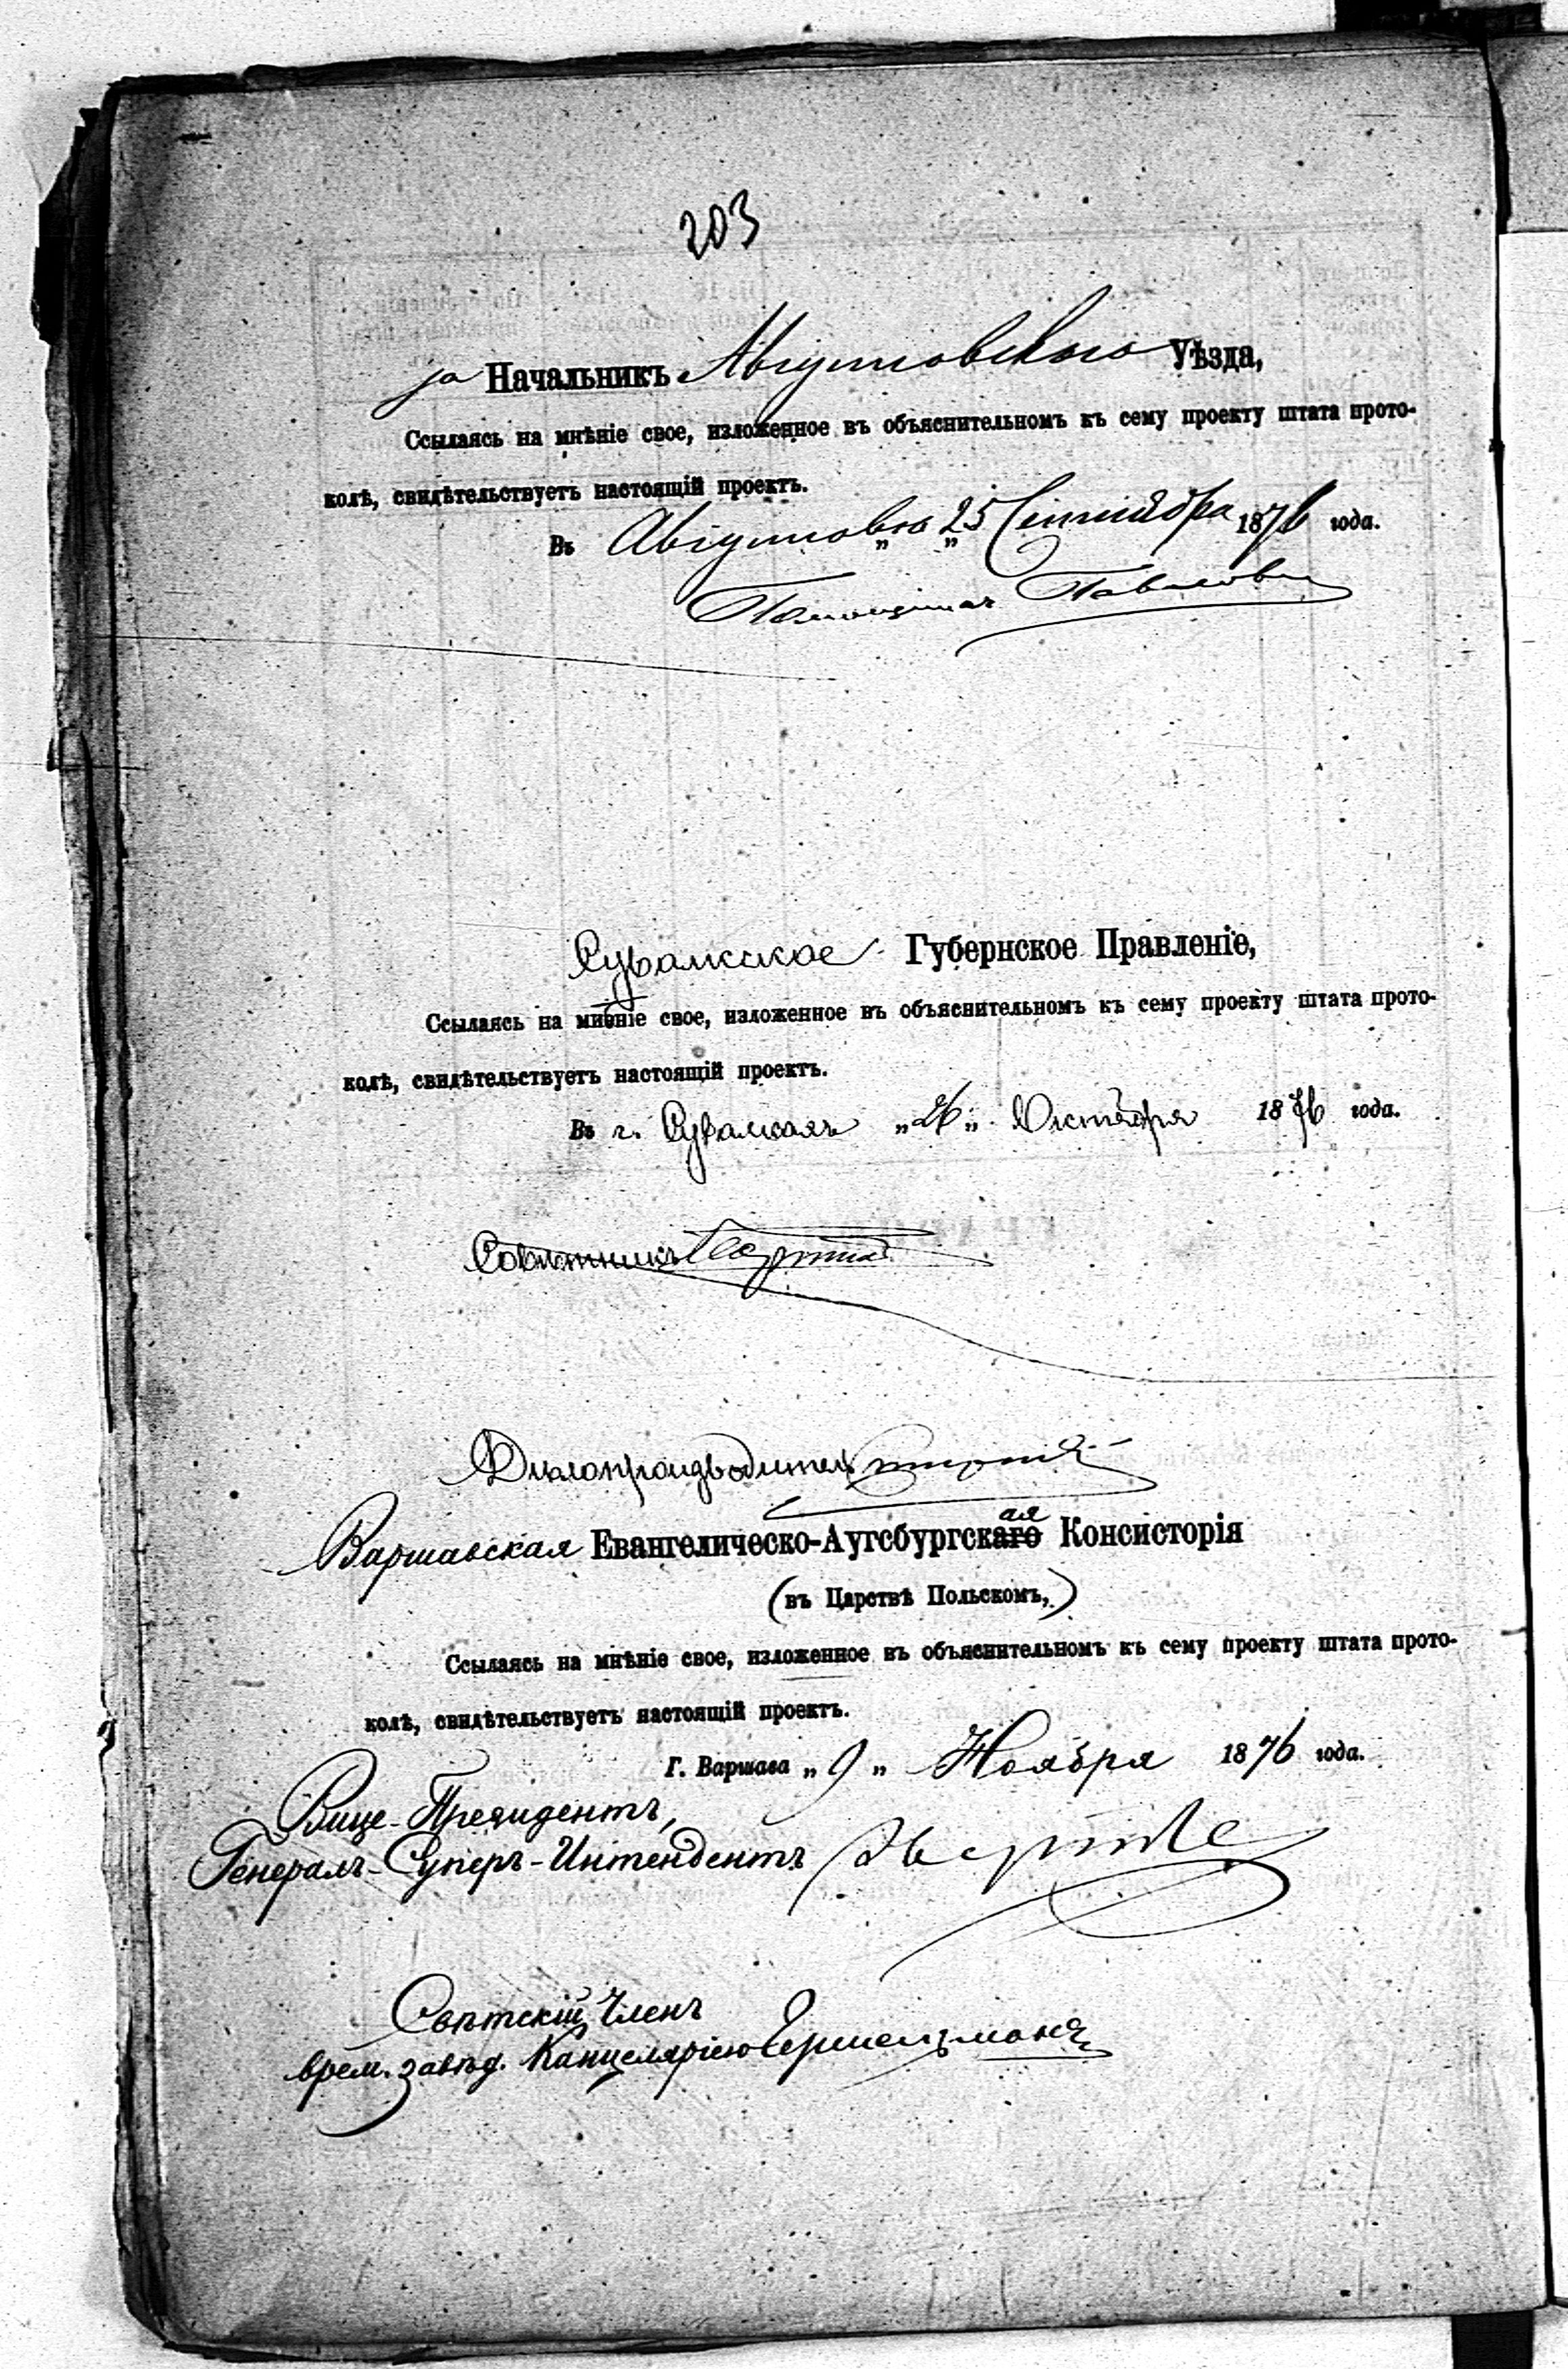 203
за Начальникъ Августовскаго Уѣзда,
Ссылаясь на мнѣніе свое, изложенное въ объяснительномъ къ сему проекту штата прото-
колѣ, свидѣтельствуетъ настоящій проектъ.
Въ Августовѣ „ 25 „ Сентября 1876 года.
Помощникъ
Сувалкское Губернское Правленіе,
Ссылаясь на мнѣніе свое, изложенное въ объяснительномъ къ сему проекту штата прото-
колѣ, свидѣтельствуетъ настоящій проектъ.
Въ г. Сувалкахъ „26„ Октября 1876 года.
Совѣтникъ
Дѣлопроизводитель
Варшавская Евангелическо-Аугсбургскаго ая Консисторія
(въ Царствѣ Польскомъ,)
Ссылаясь на мнѣніе свое, изложенное въ объяснительномъ къ сему проекту штата прото-
колѣ, свидѣтельствуетъ настоящій проектъ.
Г. Варшава „ 9 „ Ноября 1876 года.
Вице-Президентъ,
Генералъ-Суперъ-Интендентъ Эверте
Свѣтскій Членъ
врем. завѣд. Канцеляріею